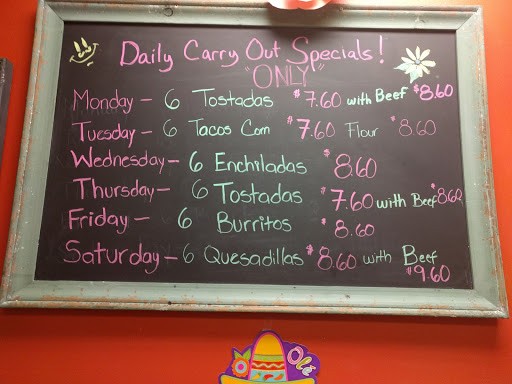 Daily Carry Out Specials!
"ONLY"
Monday - 6 Tostadas $7.60 with Beef $8.60
Tuesday - 6 Tacos Corn $7.60 Flour $8.60
Wednesday - 6 Enchiladas $8.60
Thursday - 6 Tostadas $7.60 with Beef $8.60
Friday - 6 Burritos $8.60
Saturday - 6 Quesadillas $8.60 with Beef
$9.60
Olé